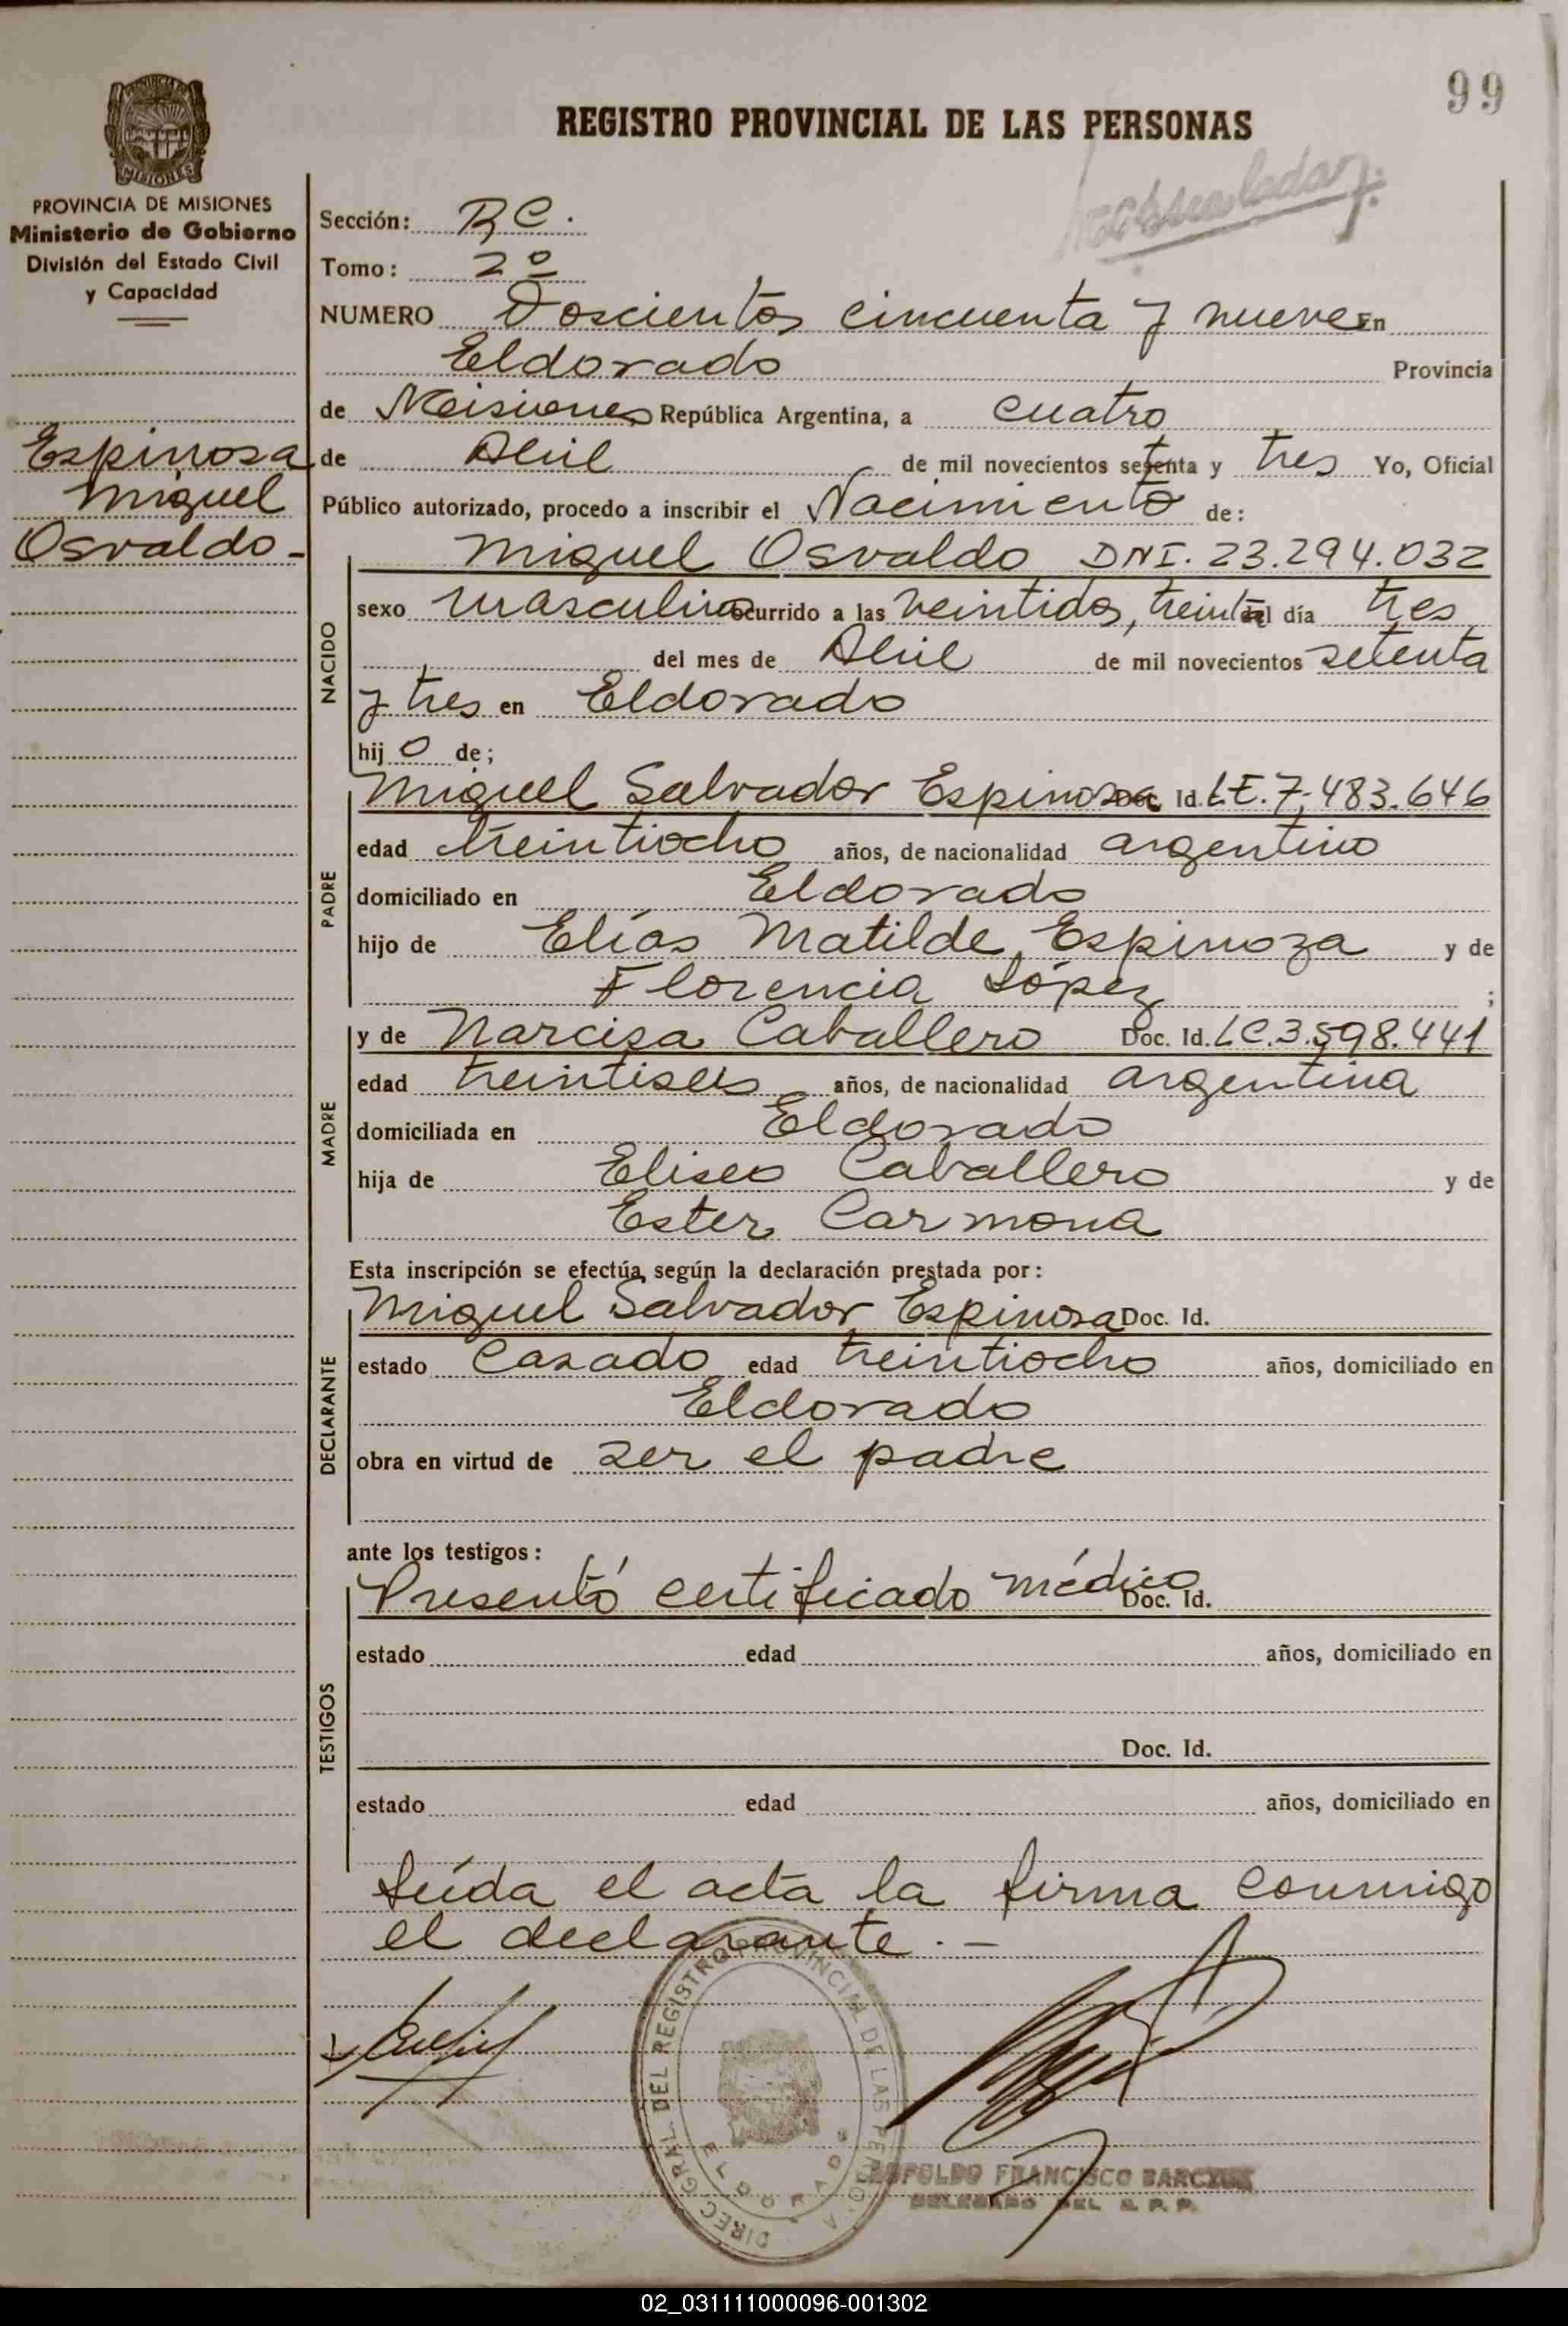 99
REGISTRO PROVINCIAL DE LAS PERSONAS
PROVINCIA DE MISIONES
Ministerio de Gobierno
División del Estado Civil
y Capacidad
Espinosa
Miguel
Osvaldo -
Sección: R C.
Tomo: 2º
NUMERO Doscientos cincuenta y nueve En
Eldorado Provincia
de Misiones República Argentina, a cuatro
de Abril de mil novecientos setenta y tres Yo, Oficial
Público autorizado, procedo a inscribir el Nacimiento de:
NACIDO
Miguel Osvaldo DNI. 23.294.032
sexo masculino ocurrido a las veintidos, treinta del día tres
del mes de Abril de mil novecientos setenta
y tres en Eldorado
hijo de;
PADRE
Miguel Salvador Espinosa Doc. Id. L.E. 7.483.646
edad treintiocho años, de nacionalidad argentino
domiciliado en Eldorado
hijo de Elías Matilde Espinoza y de
Florencia López ;
MADRE
y de Narcisa Caballero Doc. Id. L.C. 3.598.441
edad treintiseis años, de nacionalidad argentina
domiciliada en Eldorado
hija de Eliseo Caballero y de
Ester Carmona
Esta inscripción se efectúa según la declaración prestada por:
DECLARANTE
Miguel Salvador Espinosa Doc. Id.
estado casado edad treintiocho años, domiciliado en
Eldorado
obra en virtud de ser el padre
ante los testigos:
TESTIGOS
Presentó certificado médico Doc. Id.
estado edad años, domiciliado en
Doc. Id.
estado edad años, domiciliado en
Leída el acta la firma conmigo
el declarante. -
DIREC. GRAL. DEL REGISTRO PROVINCIAL DE LAS PERSONAS
ELDORADO
FRANCISCO
DELEGADO DEL R. P. P.
02_031111000096-001302